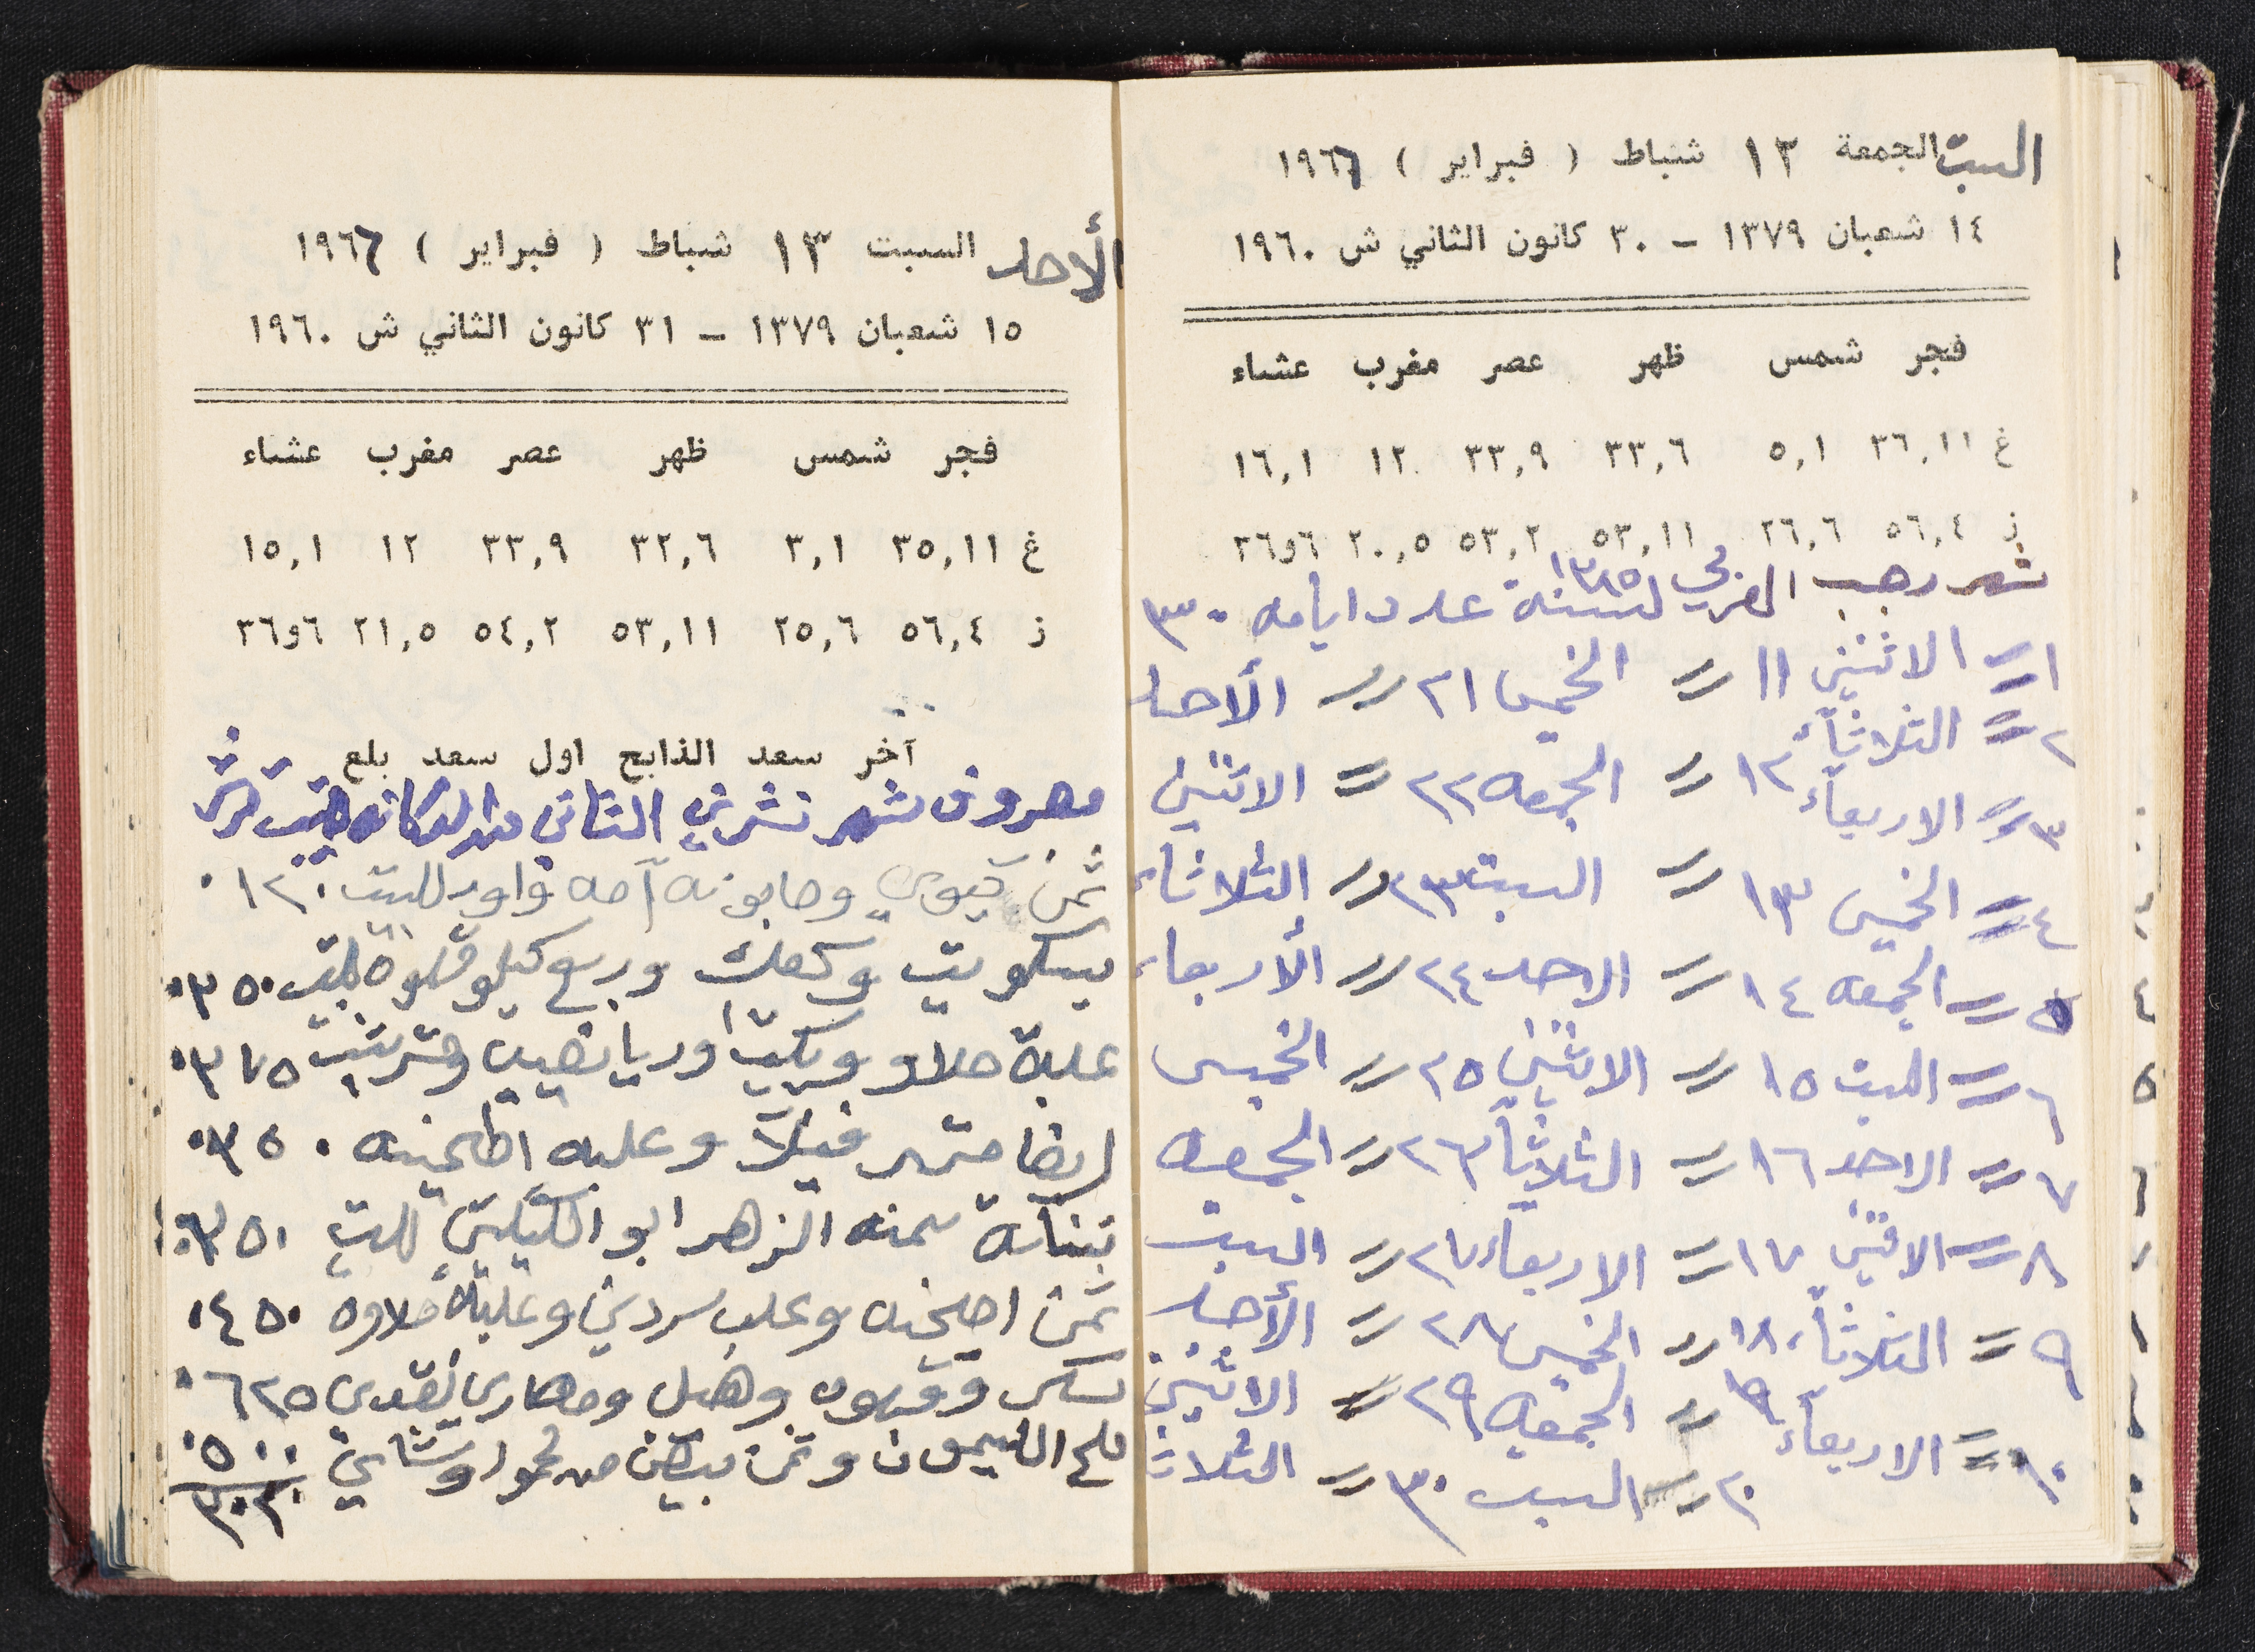 السبت الجمعة ١٢ شباط ( فبراير ) ١٩٦٦
١٤ شعبان ١٣٧٩ - ٣٠ كانون الثاني ش ١٩٦٠
فجر شمس ظهر عصر مغرب عشاء
غ ٣٦,١١ ٥,١ ٣٣,٦ ٣٣,٩ ١٢ ١٦,١
ز ٥٦,٤ ٢٦,٦ ٥٣,١١ ٥٣,٢ ٢٠,٥ ٣٦و٦
شهر رجب العربي لسنة ١٣٨٥ عدد ايامه ٣٠
١ = الاثنين ١١ = الخميس ٢١ = الأحد
٢ = الثلاثاء ١٢ = الجمعه ٢٢ = الاثنين
٣ = الاربعاء
٤ = الخميس ١٣ = السبت ٢٣ = الثلاثاء
٥ = الجمعه ١٤ = الاحد ٢٤ = الأربعاء
٦ = السبت ١٥ = الاثنين ٢٥ = الخميس
٧ = الاحد ١٦ = الثلاثاء ٢٦ = الجمعه
٨ = الاثنين ١٧ = الاربعاء ٢٧ = السبت
٩ = الثلاثاء ١٨ = الخميس ٢٨ = الأحد
١٠ = الاربعاء ١٩ = الجمعه ٢٩ = الاثنين
٢٠ = السبت ٣٠ = الثلاثاء
الأحد السبت ١٣ شباط ( فبراير ) ١٩٦٦
١٥ شعبان ١٣٧٩ - ٣١ كانون الثاني ش ١٩٦٠
فجر شمس ظهر عصر مغرب عشاء
غ ٣٥,١١ ٣,١ ٣٢,٦ ٣٣,٩ ١٢ ١٥,١
ز ٥٦,٤ ٢٥,٦ ٥٣,١١ ٥٤,٢ ٢١,٥ ٣٦و٦
آخر سعد الذابح اول سعد بلع
مصروف شهر تشرين الثاني
ثمن وصابونه للبيت ٠١٢٠
بيسكويت وكعك وربع كيلو قهوة للبيت ٠٣٥٠
علبة حلاو وبسكيت ٠٣٧٥
ايضا وعلبه اطحينه ٠٣٥٠
سمنه الزهرا ابو للبيت ٠٣٥٠
ثمن اطحينه وعلب سردين وعلبة حلاوه ٠٤٥٠
سكر وقهوه وهيل ومصاري نقدي ٠٦٢٥
ملح الليمون وثمن بيض وشاي ٠٥٠٠